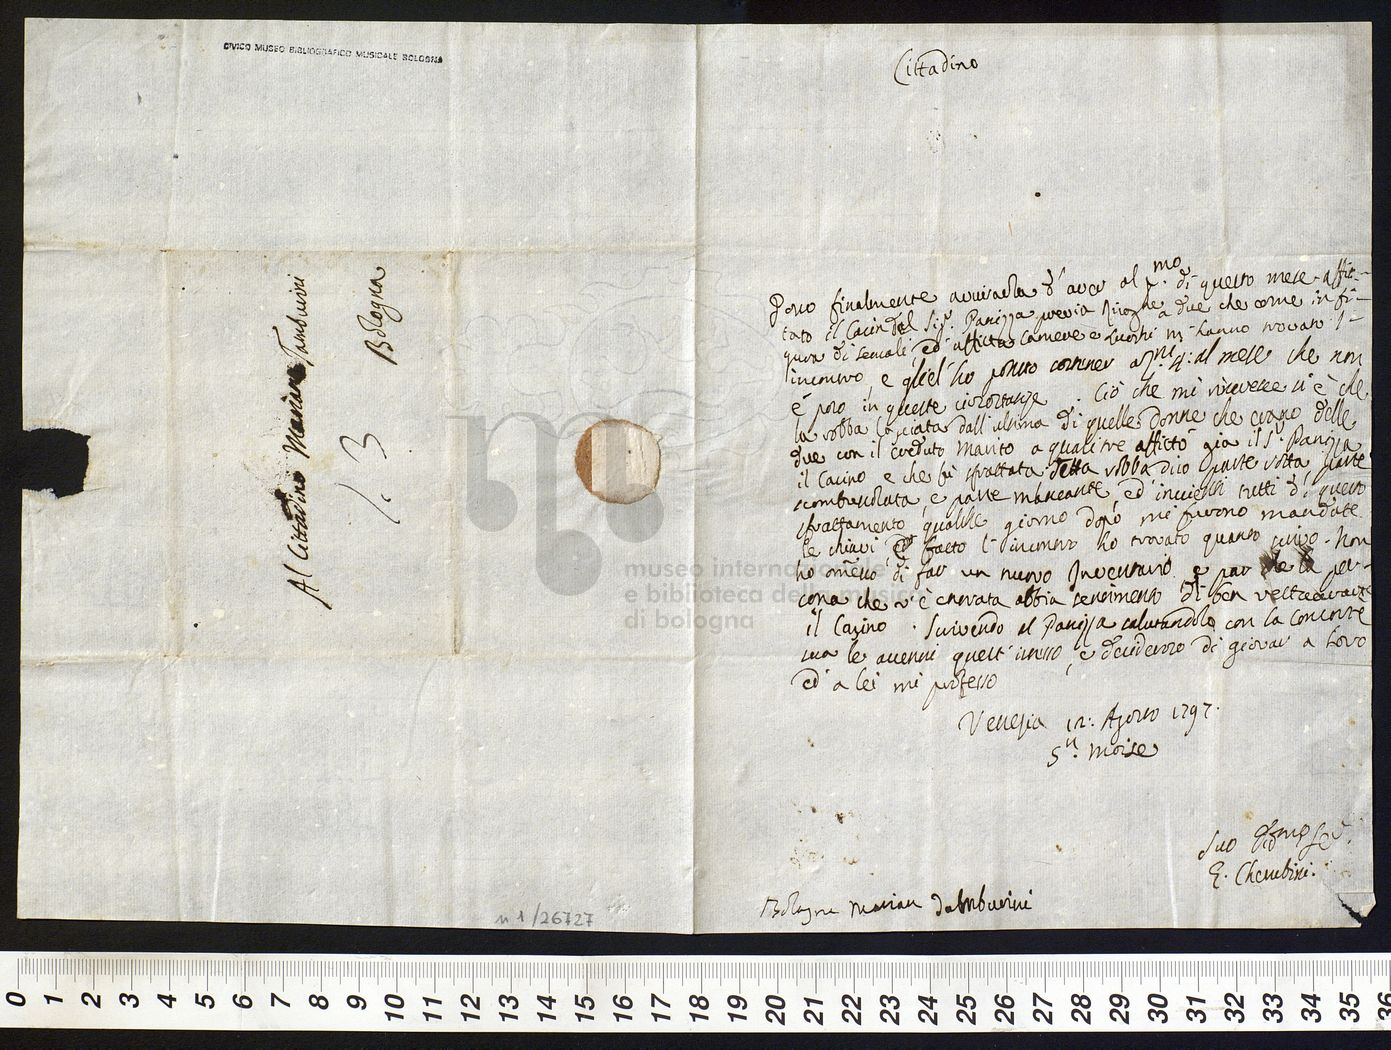 CIVICO MUSEO BIBLIOGRAFICO MUSICALE BOLOGNA
Al Cittadino Mariano Tamburini
Bologna
Cittadino
Posso finalmente avvisarla d'aver al p.mo di questo mese affit-
tato il Casin del Sig.r Panizza previa
di sensali, ed affitta camere e luoghi m'hanno trovato l'
incontro, e gliel'ho potuto a 4: al mese che non
è poco in queste circostanze. Ciò che mi è che
la robba lasciata dall'ultima di quelle donne che erano delle
due con il creduto Marito a quali tre affittò già il S.r Panizza
il Casino e che fù sfrattata. Detta robba dico parte rotta parte
e parte mancante, ed tutti di questo
sfrattamento qualche giorno dopo mi furono mandate
le chiavi e fatto l'incontro ho trovato quanto scrivo. Non
ho omesso di far un nuovo Inventario e par che la per-
sona che v'è entrata abbia sentimento di ben
il Casino. Scrivendo al Panizza salutandolo con la Consorte
sua le accenni quest'istesso, e desideroso di giovar a Loro
ed a lei mi professo
Venezia 12: Agosto 1797.
S.n Moise
Suo
Cherubini.
Bologna Marian Tamburini
n 1/26727
museo internazionale
e biblioteca della musica
di bologna
0 1 2 3 4 5 6 7 8 9 10 11 12 13 14 15 16 17 18 19 20 21 22 23 24 25 26 27 28 29 30 31 32 33 34 35 36